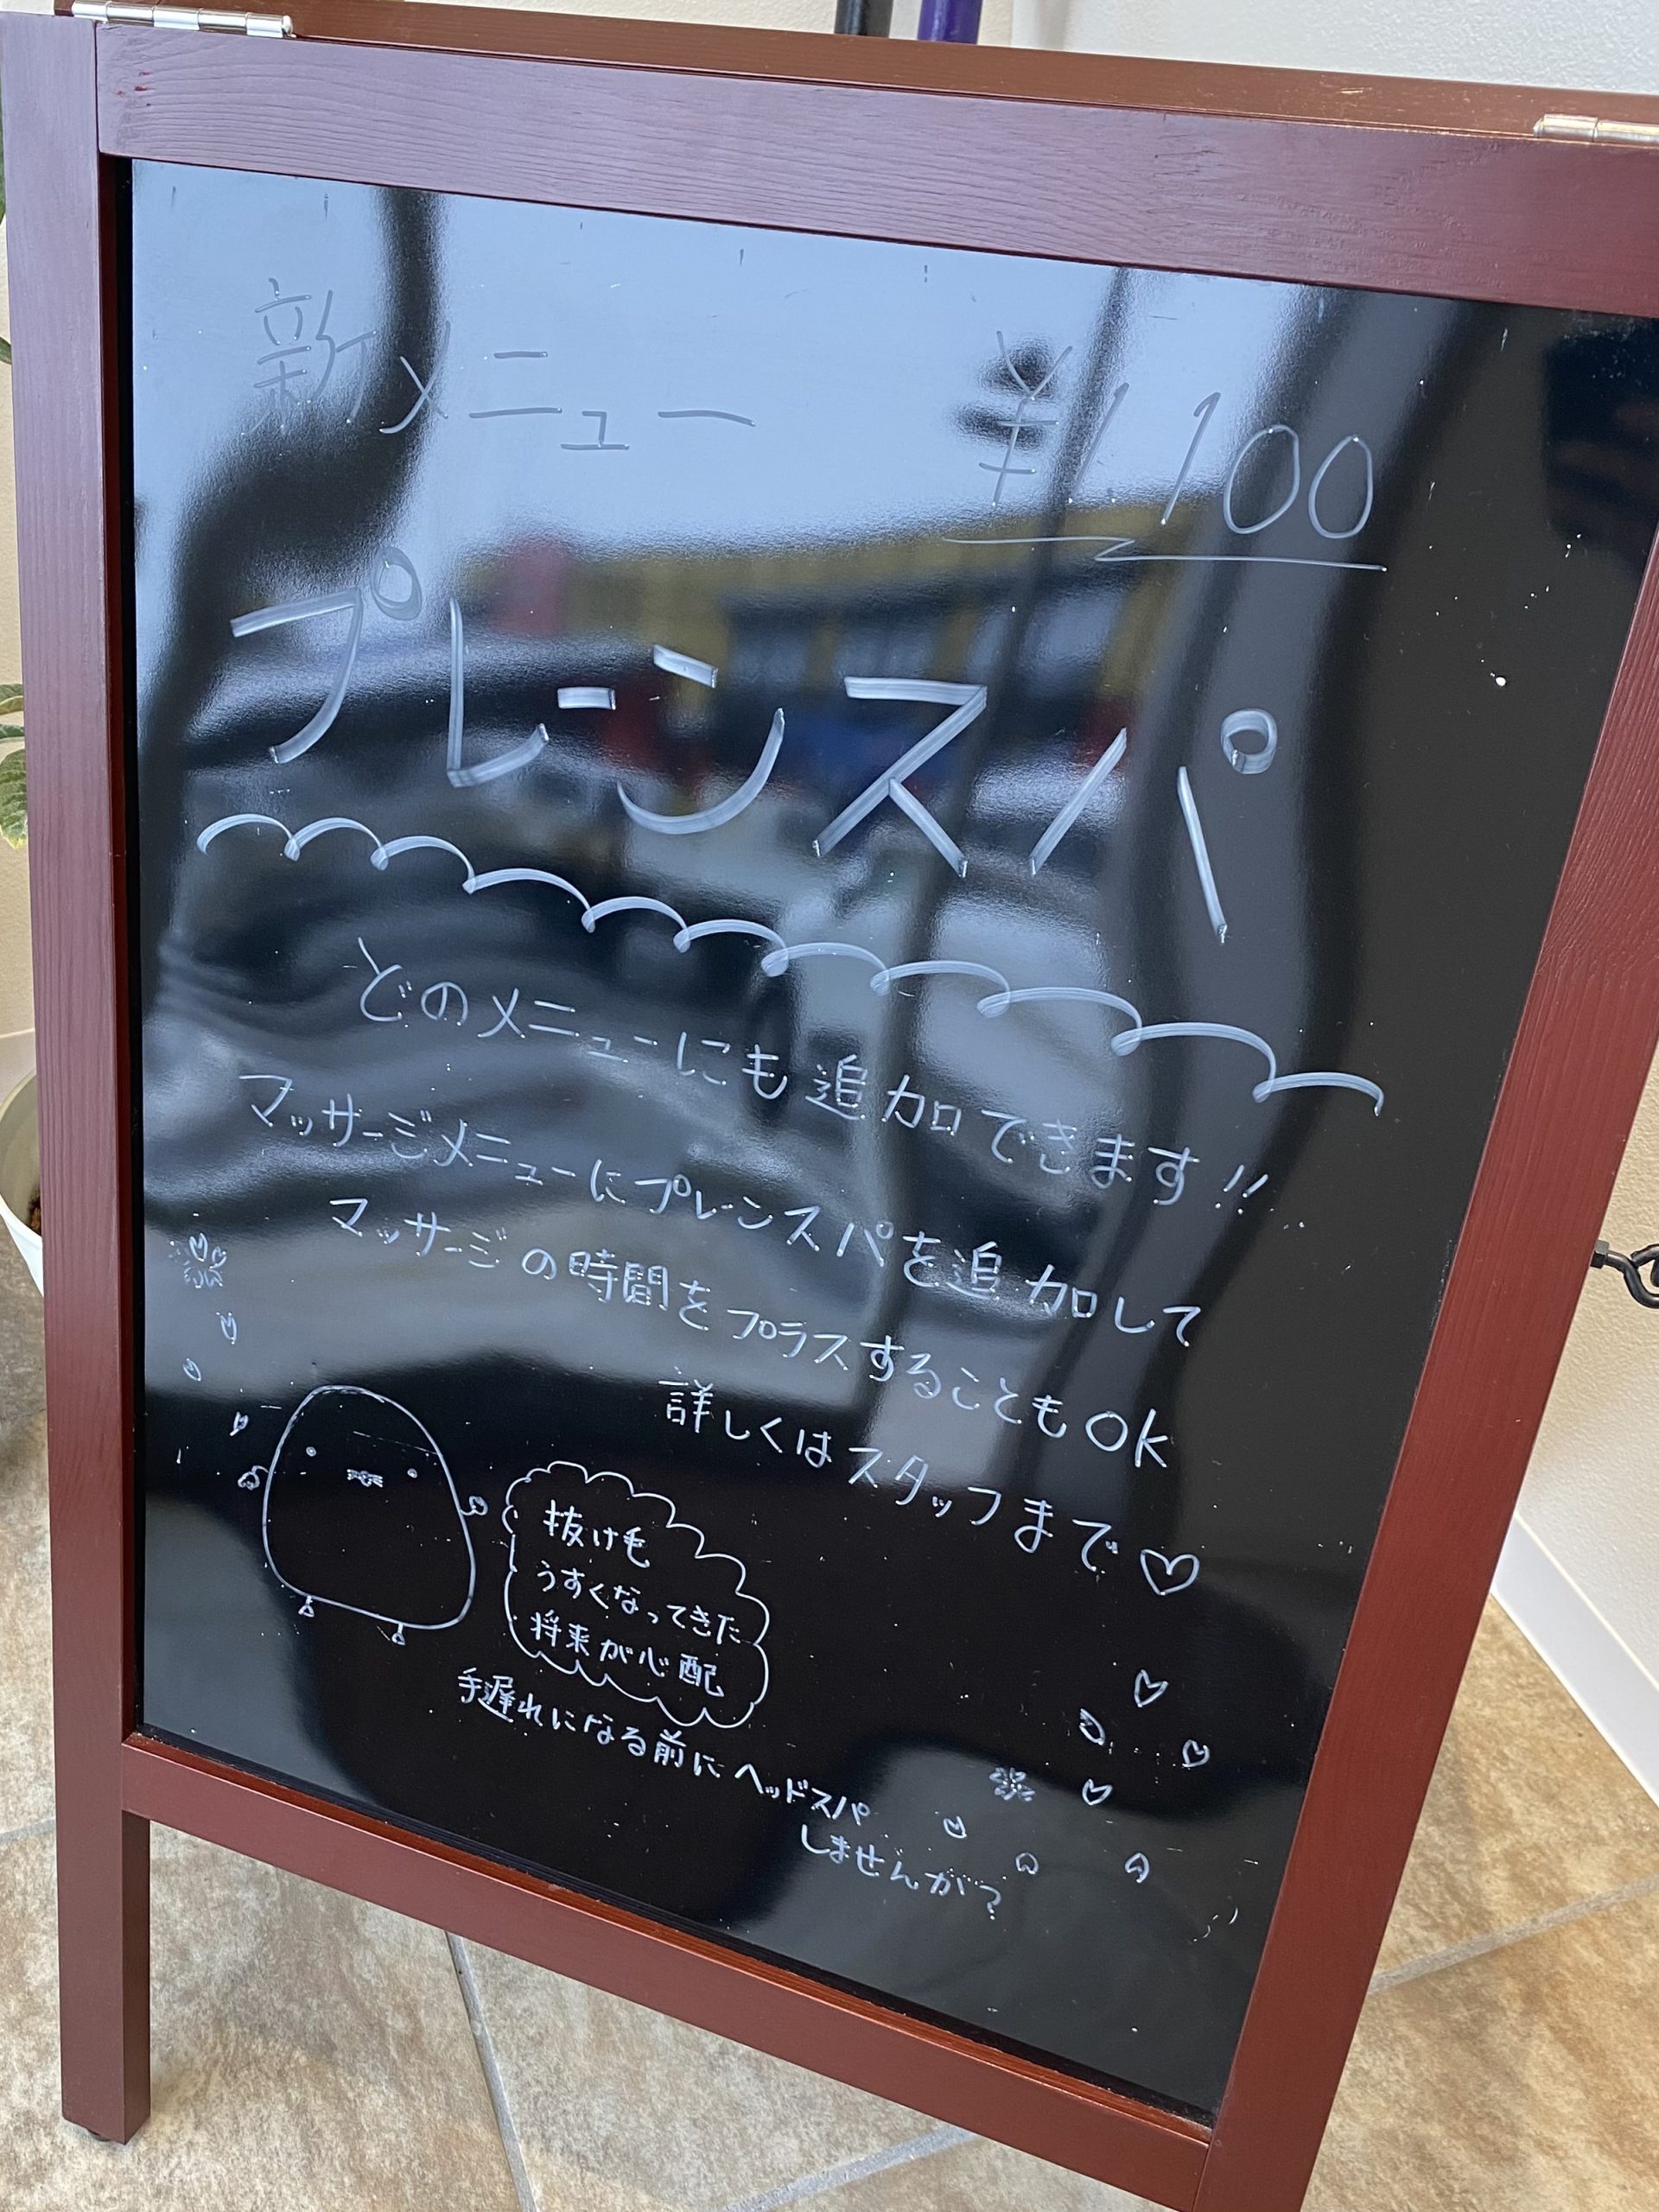 新メニュー ¥1,100
プレーンスパ
どのメニューにも追加できます!!
マッサージメニューにプレーンスパを追加して
マッサージの時間をプラスすることもOK
詳しくはスタッフまで♡
抜け毛
うすくなってきた
将来が心配
手遅れになる前にヘッドスパ
しませんか?